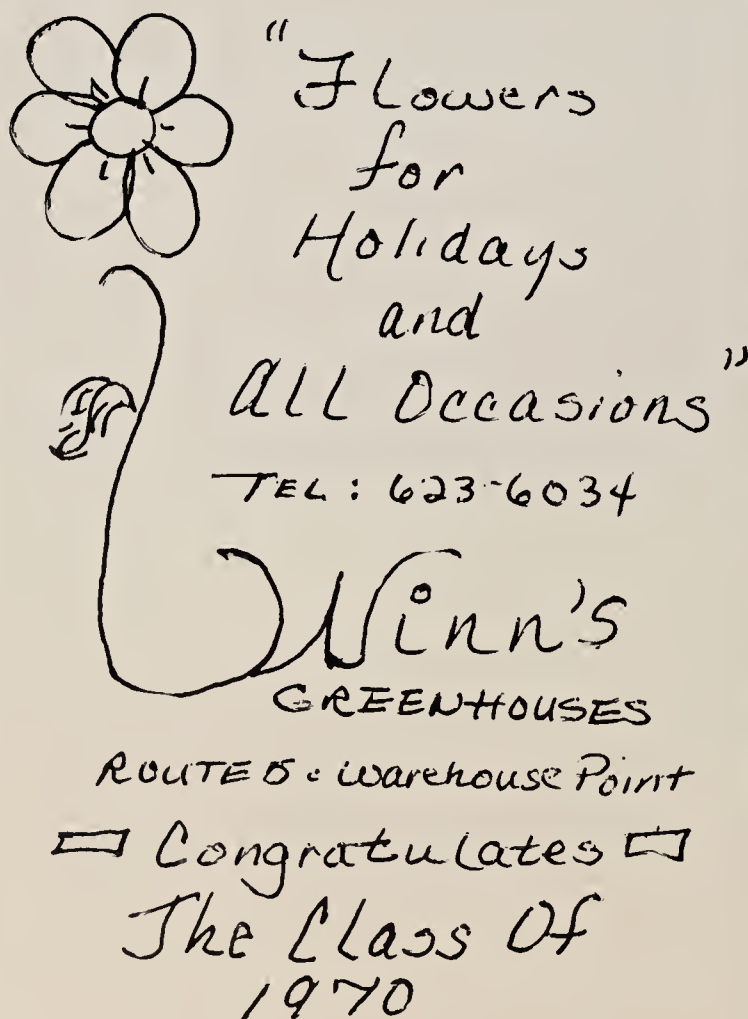 "Flowers
for
Holidays
and
ALL Occasions"
TEL: 623-6034
Winn's
GREENHOUSES
ROUTE 5 · Warehouse Point
Congratulates
The Class Of
1970